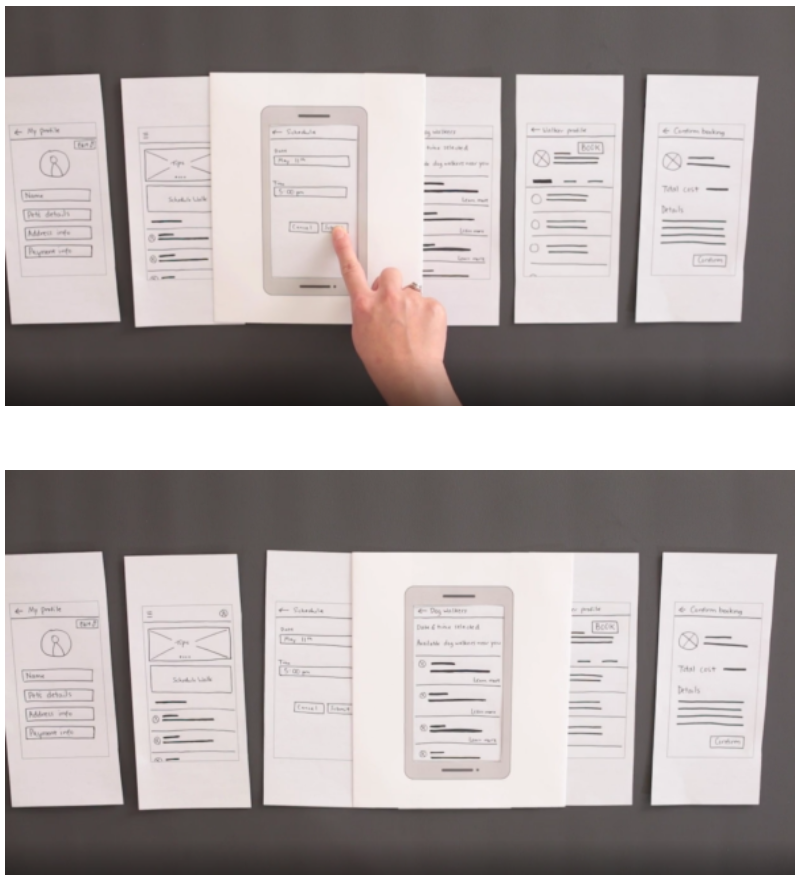 ← My profile
Edit
Name
Pets details
Address info
Payment info
Schedule Walk
← Schedule
Date
May 11th
Time
5:00 pm
Cancel
walkers
time selected
dog walkers near you
Learn more
Learn more
Learn more
← Walker profile
BOOK
← Confirm booking
Total cost
Details
Confirm
← My profile
Edit
Name
Pets details
Address info
Payment info
Schedule Walk
← Schedule
Date
May 11th
Time
5:00 pm
Cancel
Submit
← Dog walkers
Date & time selected
Available dog walkers near you
Learn more
Learn more
Learn more
profile
BOOK
← Confirm booking
Total cost
Details
Confirm